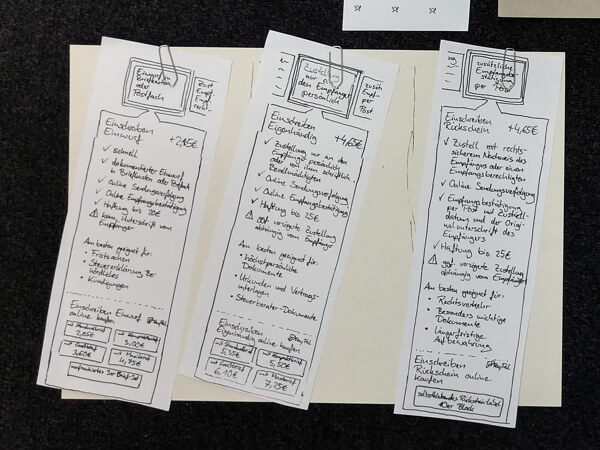 Einwurf in
Briefkasten
oder
Postfach
Einschreiben
Einwurf
+2,15€
✓ schnell
✓ dokumentierter Einwurf
in Briefkasten oder Postfach
✓ Online Sendungsverfolgung
✓ Online Empfangsbestätigung
✓ Haftung bis 20€
⚠ keine Unterschrift vom
Empfänger
Am besten geeignet für:
• Fristsachen
• Steuererklärung Be-
hördliches
• Kündigungen
Einschreiben Einwurf
online kaufen
PayPal
→ Standardbrief
2,85€
→ Kompaktbrief
3,00€
→ Großbrief
3,60€
→ Maxibrief
4,75€
Zustellung
nur an
den Empfänger
persönlich
zusät
Empf
per
Post
Einschreiben
Eigenhändig
+4,65€
✓ Zustellung nur an den
Empfänger persönlich
oder von ihm schriftlich
Bevollmächtigten
✓ Online Sendungsverfolgung
✓ Online Empfangsbestätigung
✓ Haftung bis 25€
⚠ ggf. verzögerte Zustellung
abhängig vom Empfänger
Am besten geeignet für:
• höchstpersönliche
Dokumente
• Urkunden und Vertrags-
unterlagen
• Steuerberater-Dokumente
Einschreiben
Eigenhändig online kaufen
PayPal
→ Standardbrief
5,35€
→ Kompaktbrief
5,50€
→ Großbrief
6,10€
→ Maxibrief
7,25€
zusätzliche
Empfangsbe-
stätigung
per Post
Einschreiben
Rückschein
+4,65€
✓ Zustell. mit rechts-
sicherem Nachweis des
Empfängers oder einem
Empfangsberechtigten
✓ Online Sendungsverfolgung
✓ Empfangsbestätigung
per Post mit Zustell-
datum und der Origi-
nalunterschrift des
Empfängers
✓ Haftung bis 25€
⚠ ggf. verzögerte Zustellung
abhängig vom Empfänger
Am besten geeignet für:
• Rechtsverkehr
• Besonders wichtige
Dokumente
• Längerfristige
Aufbewahrung
PayPal
Einschreiben
Rückschein online
kaufen
selbstklebendes Rückscheinlabel
10er Block